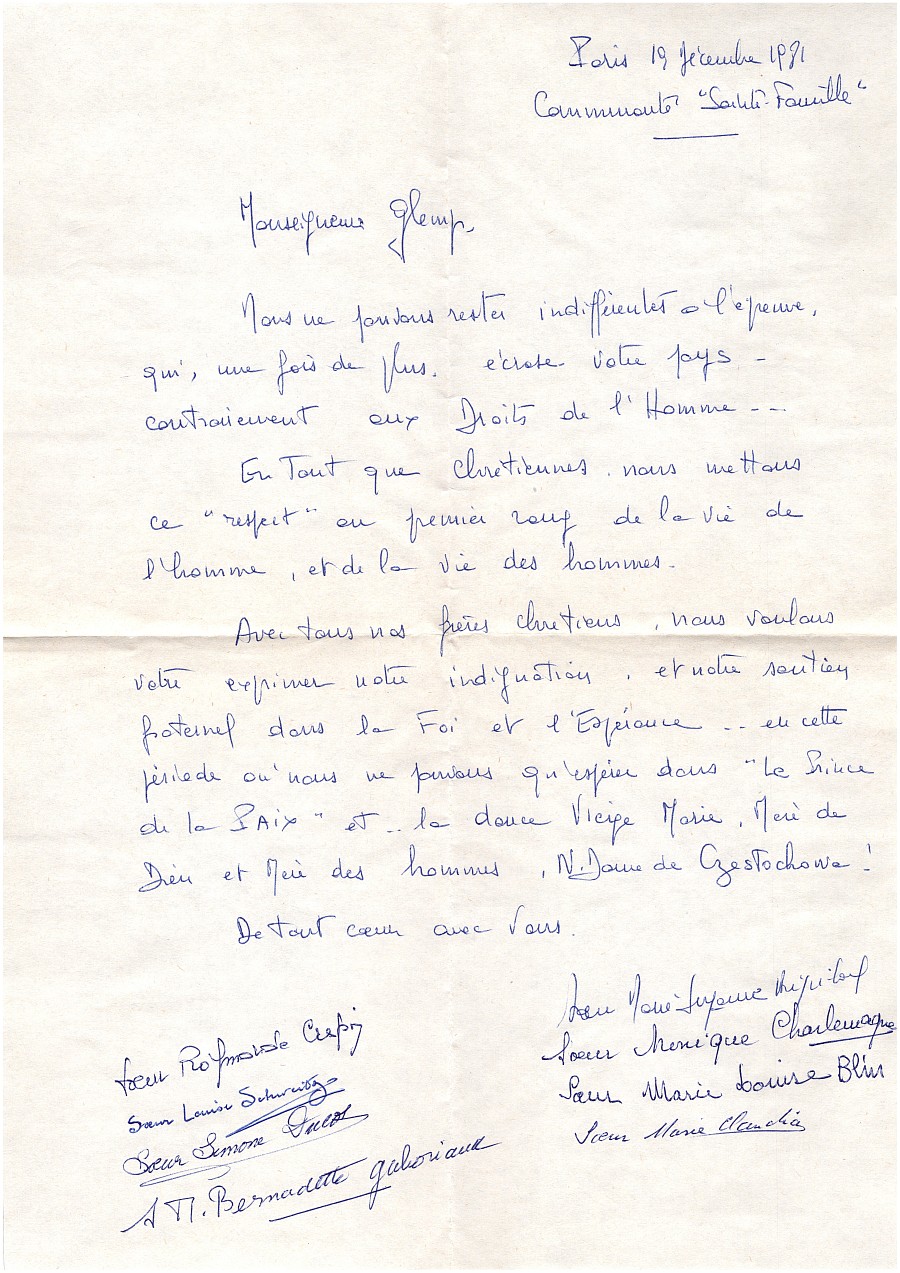 Paris 19 Décembre 1981
Communauté "Sainte-Famille"
Monseigneur Glemp,
Nous ne pouvons rester indifférentes à l'épreuve,
qui, une fois de plus, écrase votre pays -
contrairement aux Droits de l'Homme --
En Tant que Chrétiennes, nous mettons
ce "respect" au premier rang de la vie de
l'homme, et de la vie des hommes.
Avec tous nos frères chrétiens, nous voulons
votre exprimer notre indignation, et notre soutien
fraternel dans la Foi et l'Espérance -- en cette
période où nous ne pouvons qu'espérer dans "Le Prince
de la PAix" et -- la douce Vierge Marie, Mère de
Dieu et Mère des hommes, N.Dame de Czestochowa !
De tout cœur avec Vous.
Sœur Marie-Suzanne
Sœur Monique Charlemagne
Sœur Marie Louise Blin
Sœur Marie Claudia
Sœur
Sœur Louise
Sœur Simone
S M. Bernadette Gaboriaux